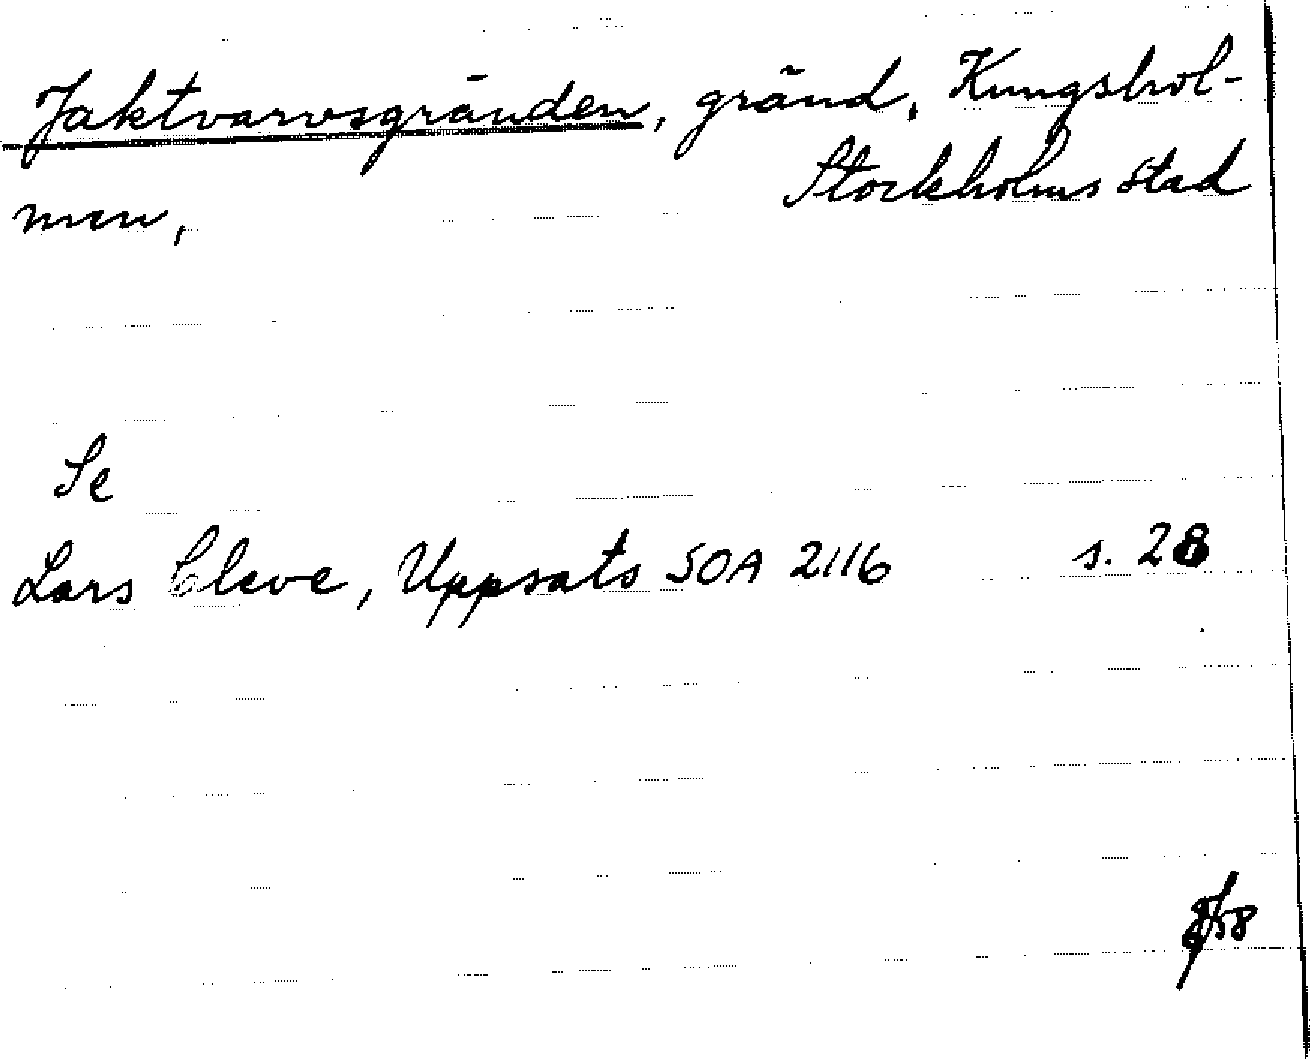 Jaktvarvsgränden, gränd, Kungshol-
men, Stockholms stad
Se
Lars Cleve, Uppsats SOA 2116 s. 28